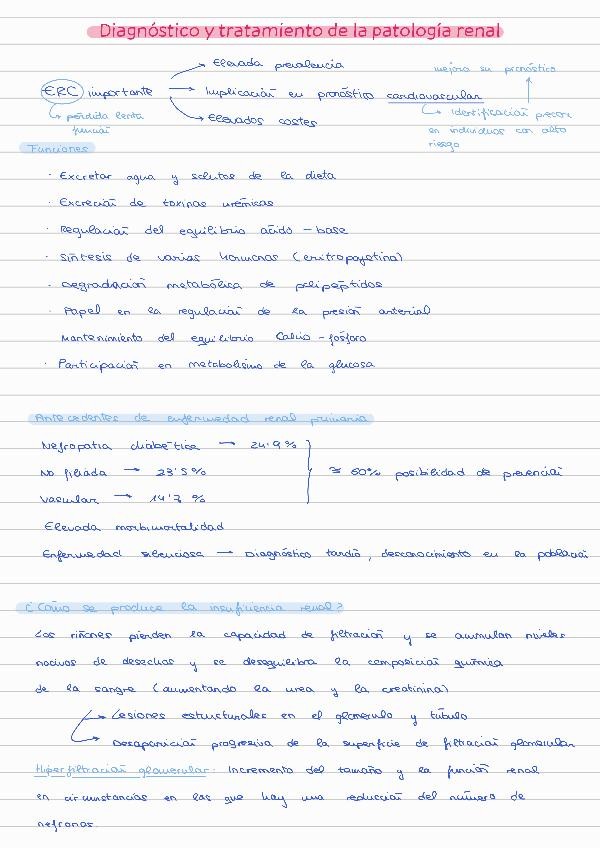 Diagnóstico y tratamiento de la patología renal
ERC importante
→ Elevada prevalencia
→ Implicación en pronóstico cardiovascular
→ Elevados costes
↳ pérdida lenta
función
mejora su pronóstico
↳ identificación precoz
en individuos con alto
riesgo
Funciones
· Excretar agua y solutos de la dieta
· Excreción de toxinas urémicas
· Regulación del equilibrio ácido-base
· Síntesis de varias hormonas (eritropoyetina)
· Degradación metabólica de polipéptidos
· Papel en la regulación de la presión arterial
Mantenimiento del equilibrio Calcio-fósforo
· Participación en metabolismo de la glucosa
Antecedentes de enfermedad renal primaria
Nefropatía diabética → 24'9%
No filiada → 23'5%
Vascular → 14'7 %
≅ 60% posibilidad de prevención
Elevada morbimortalidad
Enfermedad silenciosa → Diagnóstico tardío, desconocimiento en la población
¿Cómo se produce la insuficiencia renal?
Los riñones pierden la capacidad de filtración y se acumulan niveles
nocivos de desechos y se desequilibra la composición química
de la sangre (aumentando la urea y la creatinina)
→ Lesiones estructurales en el glomérulo y túbulo
→ Desaparición progresiva de la superficie de filtración glomerular
Hiperfiltración glomerular: Incremento del tamaño y la función renal
en circunstancias en las que hay una reducción del número de
nefronas.